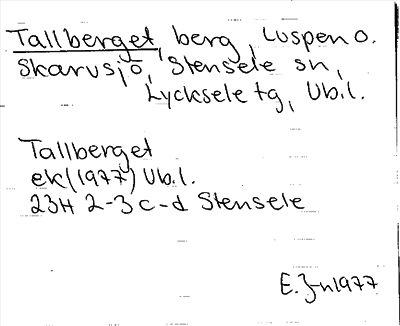 Tallberget, berg, Luspen o.
Skarvsjö, Stensele sn,
Lycksele tg, Vb.l.
Tallberget
ek (1977) Vb.l.
23H 2-3 c-d Stensele
E. Jn 1977